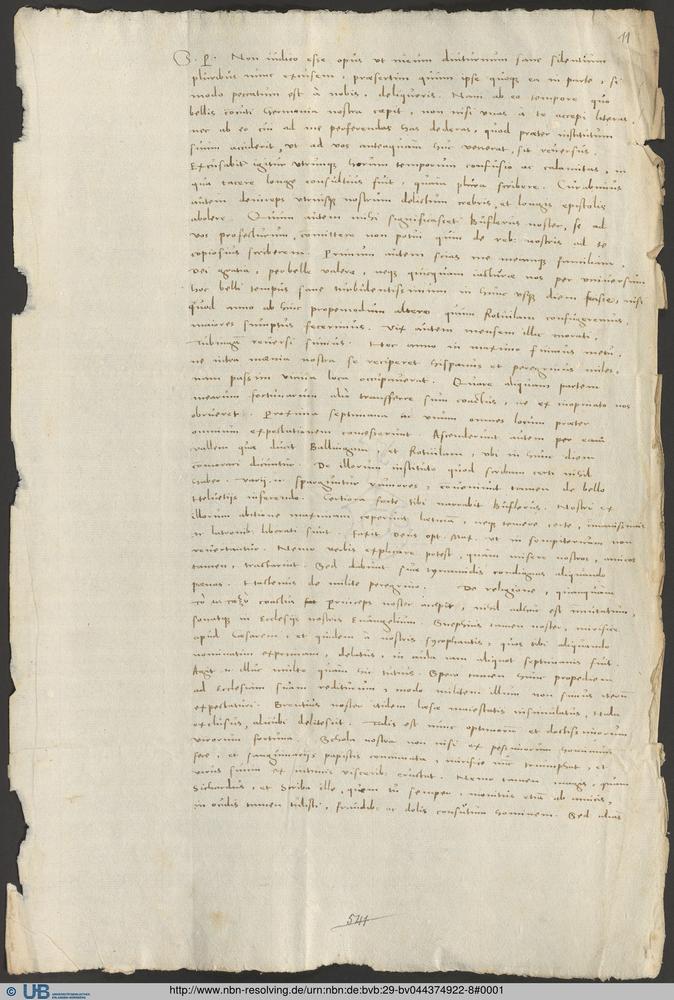 11
S. P. Non iudico esse opus ut meum diuturnum sane silentium
pluribus nunc excusem, praesertim quum ipse quoque ea in parte, si
modo peccatum est à nobis, deliqueris. Nam ab eo tempore quo
bellis coepit Germania nostra non nisi unas à te accepi literas
nec ab eo cui ad me perferendas has dederas, quod praeter institutum
suum acciderit, ut ad vos antequam huc venerat, sit reversus.
Excusabit igitur utrumque horum temporum confusio ac calamitas, in
qua tacere longe consultius fuit, quam plura scribere. Curabimus
autem deinceps utriusque nostrum delictum crebris et longis epistolis
abolere. Quum autem mihi significasset Bufflerus noster, se ad
vos profecturum, committere non potui quin de reb. nostris ad te
copiosius scriberem. Primum autem scias me meamque familiam,
Dei gratia, perbelle valere, neque quicquam iacturae nos per universum
hoc belli tempus sane turbulentissimum in hunc usque diem fecisse, nisi
quod anno ab hinc propemodum altero quum Rotuilam confugeremus,
maiores sumptus fecerimus. Vix autem mensem illic morati,
Tubingam reversi sumus. Hoc anno in maximo fuimus metu,
ne intra moenia nostra se reciperet Hispanus et peregrinus miles,
nam passim vicina loca occupaverat. Quare aliquam partem
mearum fortunarum aliò transferre sum coactus, ne ex inopinato nos
obrueret. Proxima septimana in unum omnes locum praeter
omnium expectationem convenerunt. Ascenderunt autem per eam
vallem quae ducit Balingam, et Rotuilam, ubi in hunc diem
commorari dicuntur. De illorum instituto quod scribam certi nihil
habeo. Varii n. sparguntur rumores, conveniunt tamen de bello
Helvetiis inferendo. Certiora forte tibi narrabit Bufflerus. Nostri ex
illorum abitione maximam coeperunt laetitiam, neque temere certe, immanissimis
n. latronib. liberati sunt. Faxit Deus opt. Max. ut in sempiternum non
revertantur. Nemo verbis explicare potest, quam misere nostros, amicos
tamen, tractarint. Sed dabunt suae tyrannidis condignas aliquando
poenas. Hactenus de milite peregrino. De religione, quanquam
coactus princeps noster accepit, nihil adhuc est immutatum,
sonatque in Ecclesiis nostris Evangelium. Snepsius tamen noster, mirifice
apud Caesarem, et quidem à nostris sycophantis, quos tibi aliquando
nominatim exprimam, delatus, in aula iam aliquot septimanis fuit.
Agit n. illic multo quam hic tutius. Spero tamen hunc propediem
ad Ecclesiam suam rediturum, modo militem illum non simus iterum
expectaturi. Brentius noster itidem laesae maiestatis insimulatus, Hala
exclusus, alicubi delitescit. Talis est nunc optimorum et doctissimorum
virorum fortuna. Schola nostra non nisi ex pessimorum hominum
fere, et sanguinariis papistis conflata, mirifice nunc triumphat, et
virus suum ex intimis viscerib. eructat. Nemo tamen magis, quam
Sichardus, et Scriba ille, quem tu semper, monitus etiam ab amicis,
in oculis tamen tulisti, fraudib. ac dolis consutum hominem. Sed alias
541
© UB
http://www.nbn-resolving.de/urn:nbn:de:bvb:29-bv044374922-8#0001